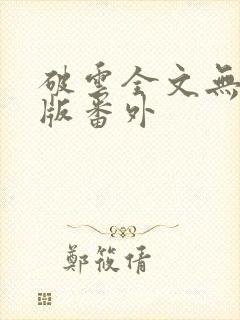 破雲全文無
版番外
鄭筱倩